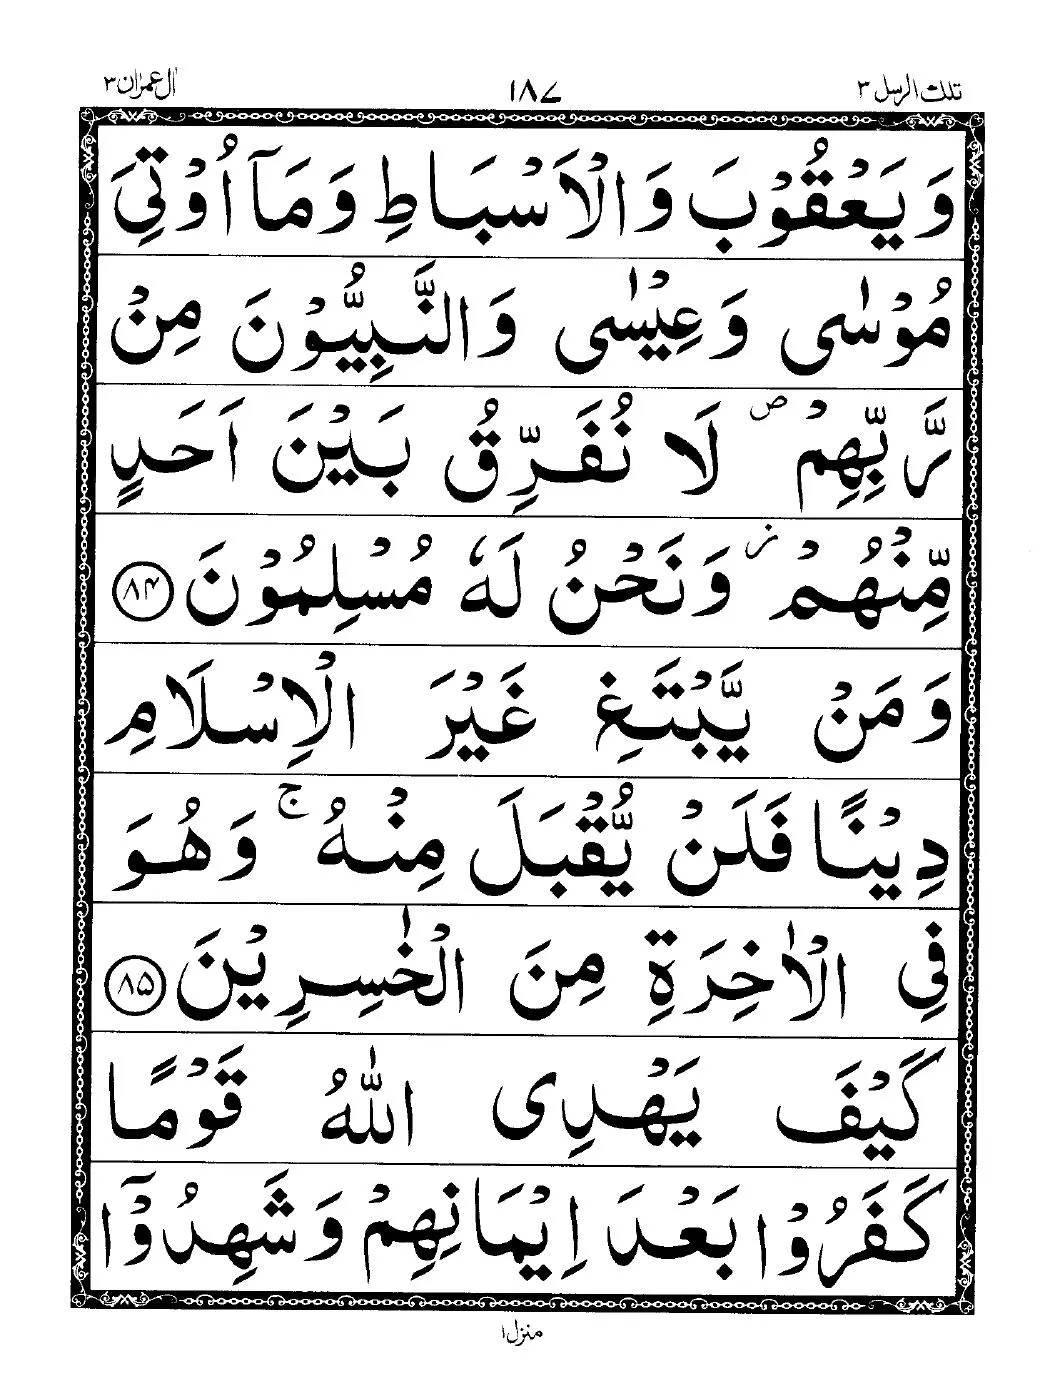 تلك الرسل ٣ ١٨٧ اٰل عمرٰن ٣
وَيَعْقُوْبَ وَالْاَسْبَاطِ وَمَآ اُوْتِيَ
مُوْسٰى وَعِيْسٰى وَالنَّبِيُّوْنَ مِنْ
رَّبِّهِمْ ۖ لَا نُفَرِّقُ بَيْنَ اَحَدٍ
مِّنْهُمْ ز وَنَحْنُ لَهٗ مُسْلِمُوْنَ ٨٤
وَمَنْ يَّبْتَغِ غَيْرَ الْاِسْلَامِ
دِيْنًا فَلَنْ يُّقْبَلَ مِنْهُ ۚ وَهُوَ
فِي الْاٰخِرَةِ مِنَ الْخٰسِرِيْنَ ٨٥
كَيْفَ يَهْدِى اللّٰهُ قَوْمًا
كَفَرُوْا بَعْدَ اِيْمَانِهِمْ وَشَهِدُوْٓا
منزل ١